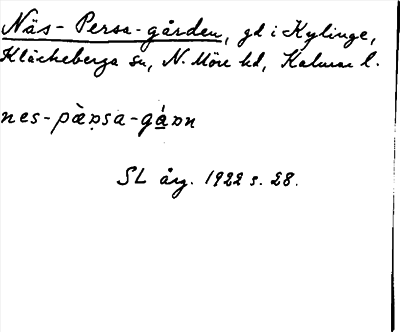 Näs-Persa-gården, gd i Kylinge,
Kläckeberga sn, N. Möre hd, Kalmar l.
nes-pæ̀ɒ̣sa-gá̱ɒn
SL årg. 1922 s. 28.